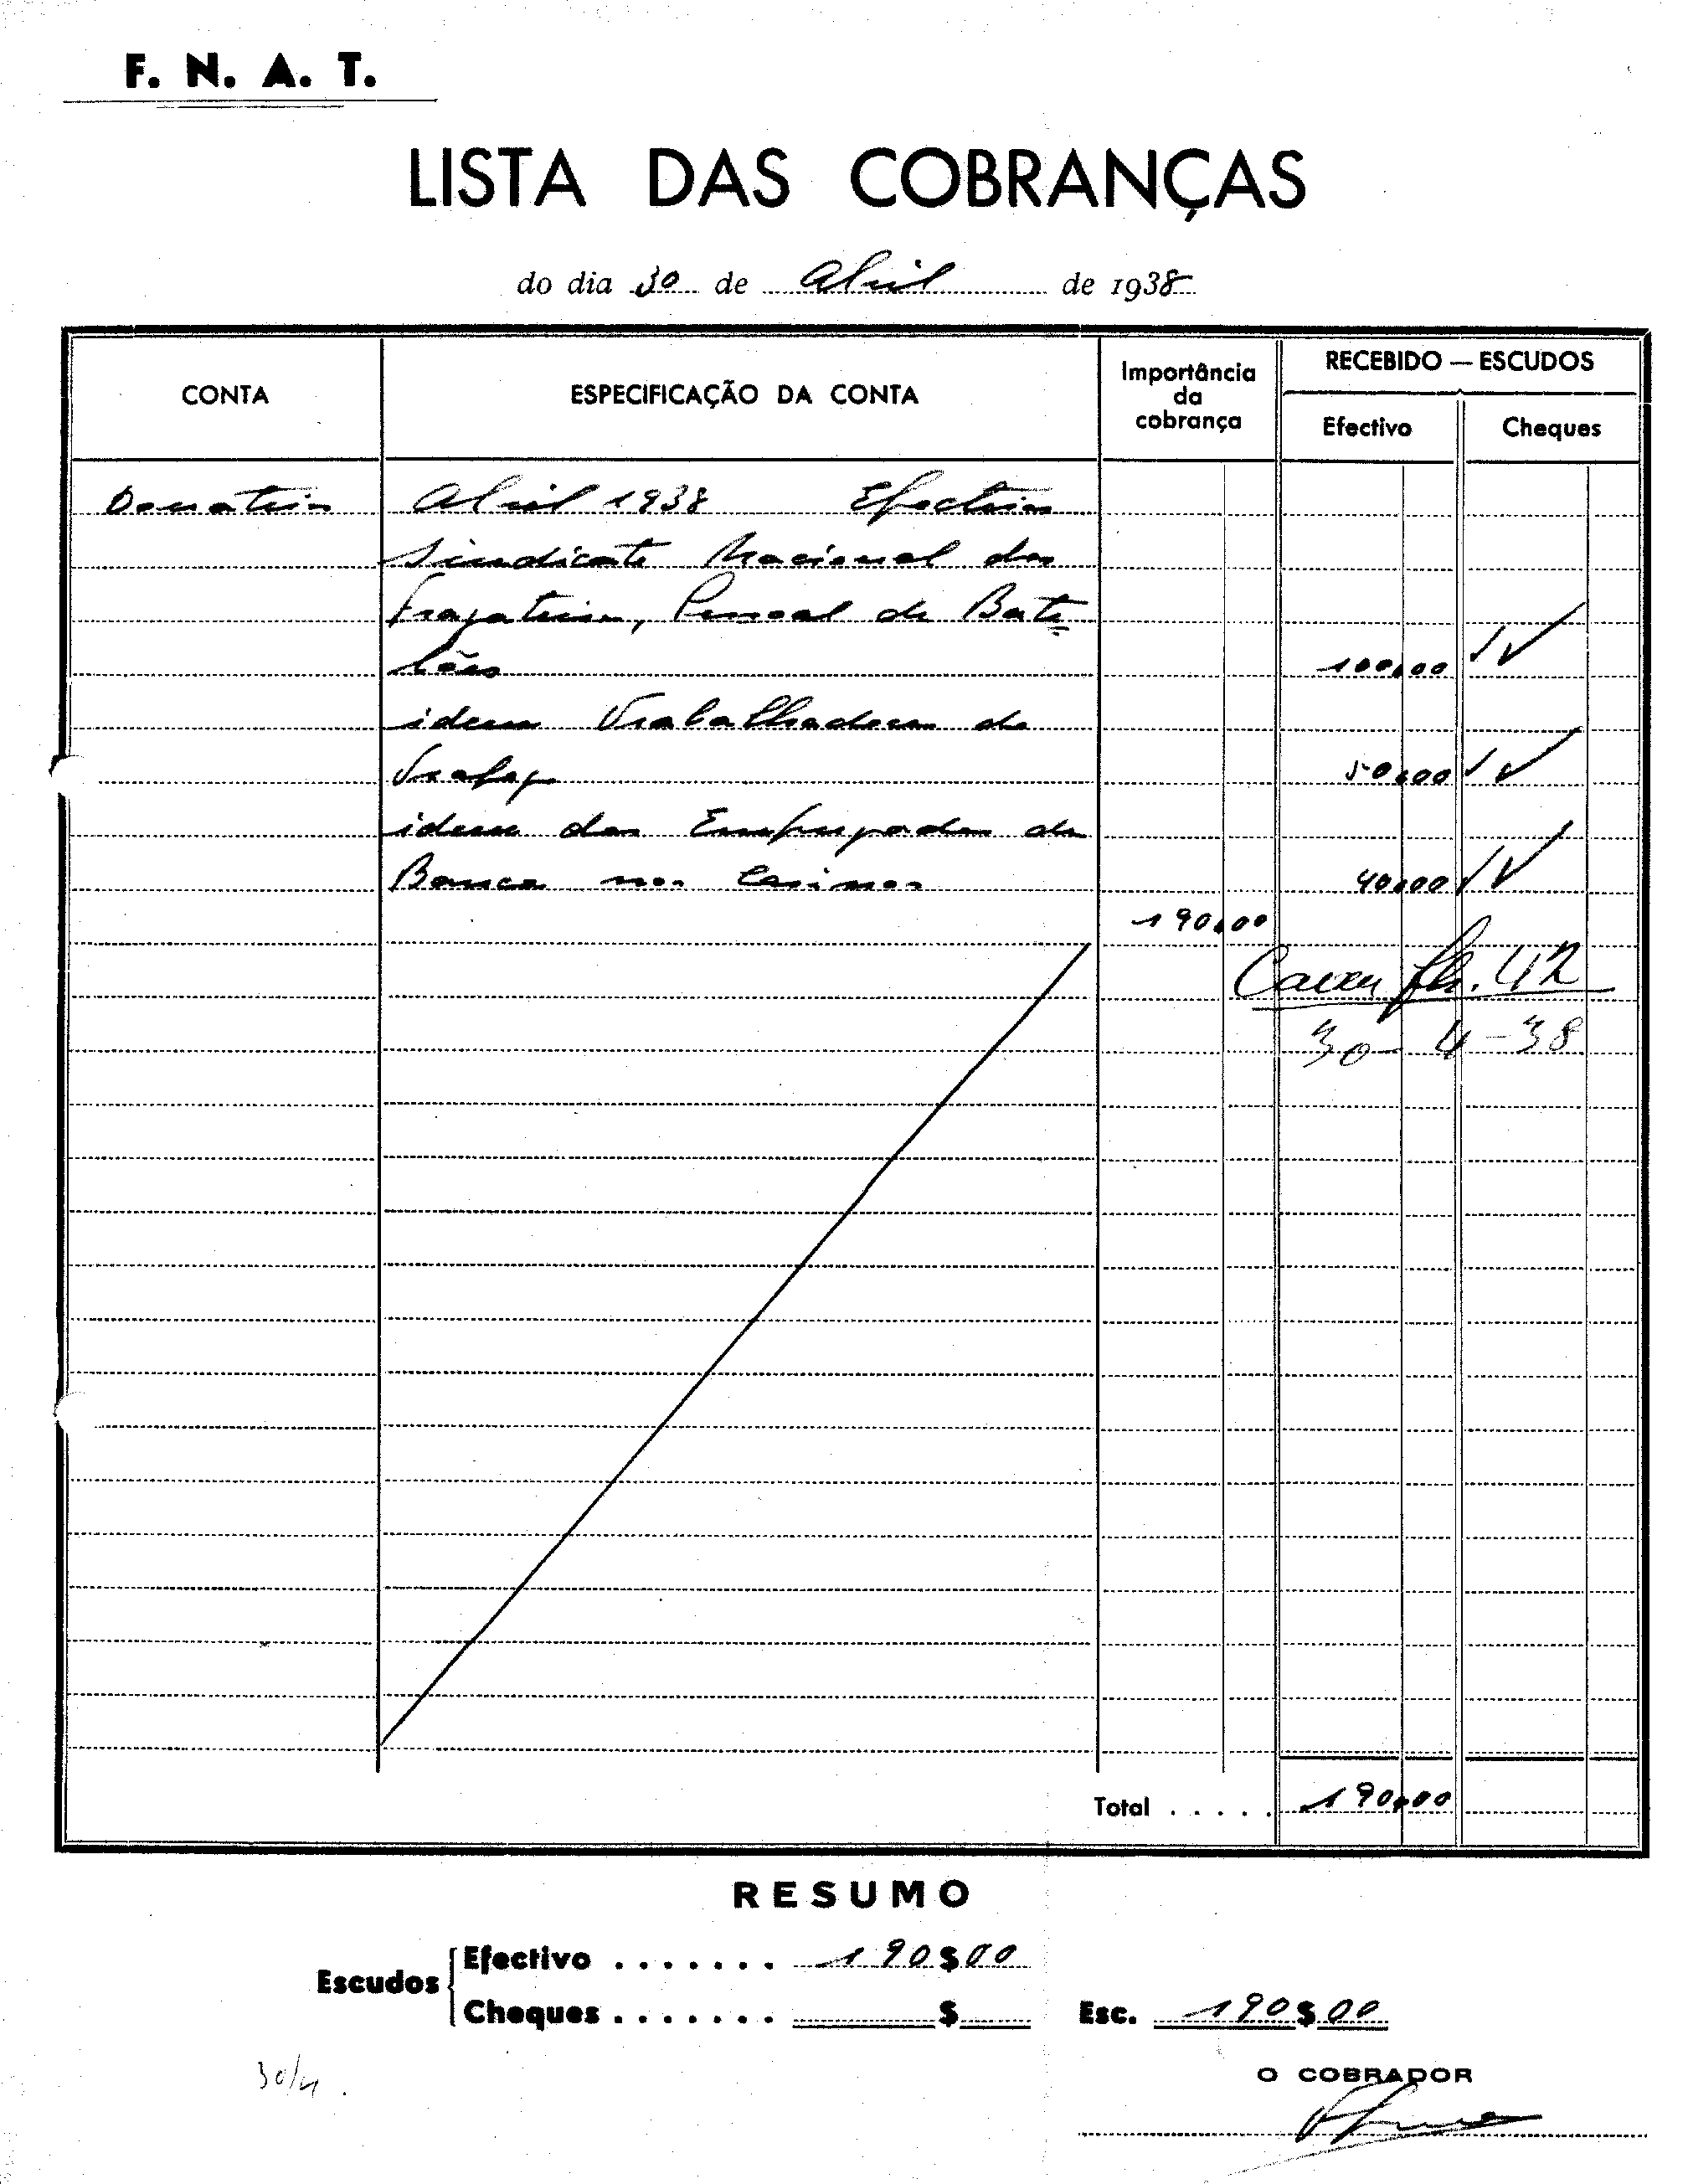 F. N. A. T.
LISTA DAS COBRANÇAS
do dia 30 de Abril de 1938
CONTA
ESPECIFICAÇÃO DA CONTA
Importância
da
cobrança
RECEBIDO — ESCUDOS
Efectivo
Cheques
Donativos Abril 1938 Efectivos
Sindicato Nacional dos
Fragateiros, Pessoal de Bate
lões 100,00
idem Trabalhadores de
Trafego 50,00
idem dos Empregados de
Banca nos Casinos 40,00
190,00
Caixa fls. 42
30-4-38
Total . . . . . 190,00
RESUMO
Escudos
Efectivo . . . . . . . 190$00
Cheques . . . . . . . $
Esc. 190$00
30/4.
O COBRADOR